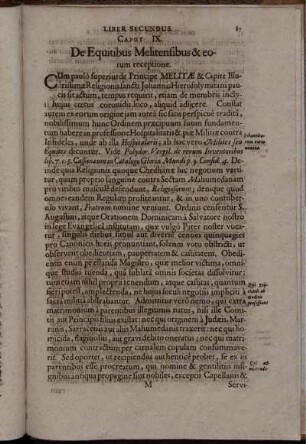 LIBER SECUNDUS.
87
CAPUT IX.
De Equitibus Melitensibus & eorum
receptione.
CUm paulò superius de Principe MELITÆ & Capite Illustrissimæ
Religionis sancti Joannis Hierosolymitani paucis
sit actum, tempus requirit, etiam de membris
hujus cœtus coronidis loco, aliquid adjicere. Constat
autem ex eorum origine jam antea
nobilissimum hunc Ordinem præcipuum suum fundamentum
habere in professione Hospitalitatis & piæ Militiæ contra
Infideles, unde ab illa Hospitalarii, ab hac verò Milites sive
Equites dicuntur. Vide Polydor. Vergil. de rerum Inventoribus
lib. 7. c. 5. Cassaneum in Catalogo Gloriæ Mundi p. 9 Consid. 4. Deinde
quia Religiosus quisque Christianæ hic negotium vertitur,
quam proprio sanguine contra Sectam Mahumedanam
pro viribus masculè defendunt, Religiosorum; denique quod
omnes eandem Regulam profiteantur, & in uno contubernio
vivant, Fratrum nomine veniunt. Ordini censentur S.
Augustini, atque Orationem Dominicam à Salvatore nostro
in lege Evangelica institutam, quæ vulgò Pater noster vocatur,
singulis diebus
pro Canonicis horis pronuntiant, solenni voto obstricti, ut
observent obedientiam, paupertatem & castitatem. Obedientis
enim præstanda Magistro, quæ melior victima, omnique
studio tuenda, qua sublata omnis societas dissolvitur;
tum etiam nihil proprii tenendum, atque castitas, quantum
fieri potest, amplectenda, ne hujus sæculi negotiis impliciti
sacra militia
matrimonio à parentibus illegitimis natus, nisi ille Comitis
aut Principis filius exstat: nec qui originem à Judæis, Marranis,
Sarracenis aut aliis Mahumedanis traxerit; nec qui homicidia,
flagitiosus, aut gravi debito oneratus; nec qui matrimonium
contractum per carnalem copulam consummaverit.
Sed oportet, ut recipiendus authenticè probet, se ex iis
parentibus esse procreatum, qui nomine & gentilitiis insignibus
antiqua propagine sint nobiles, exceptis Capellanis &
M
Servi-